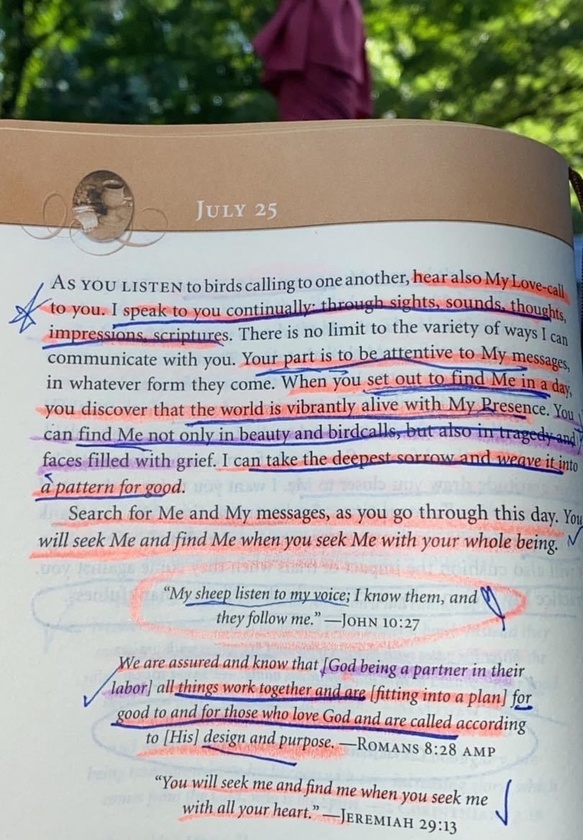 July 25
As you listen to birds calling to one another, hear also My Love-call
to you. I speak to you continually: through sights, sounds, thoughts,
impressions, scriptures. There is no limit to the variety of ways I can
communicate with you. Your part is to be attentive to My messages,
in whatever form they come. When you set out to find Me in a day,
you discover that the world is vibrantly alive with My Presence. You
can find Me not only in beauty and birdcalls, but also in tragedy and
faces filled with grief. I can take the deepest sorrow and weave it into
a pattern for good.
Search for Me and My messages, as you go through this day. You
will seek Me and find Me when you seek Me with your whole being.
“My sheep listen to my voice; I know them, and
they follow me.” —John 10:27
We are assured and know that [God being a partner in their
labor] all things work together and are [fitting into a plan] for
good to and for those who love God and are called according
to [His] design and purpose. —Romans 8:28 AMP
“You will seek me and find me when you seek me
with all your heart.” —Jeremiah 29:13